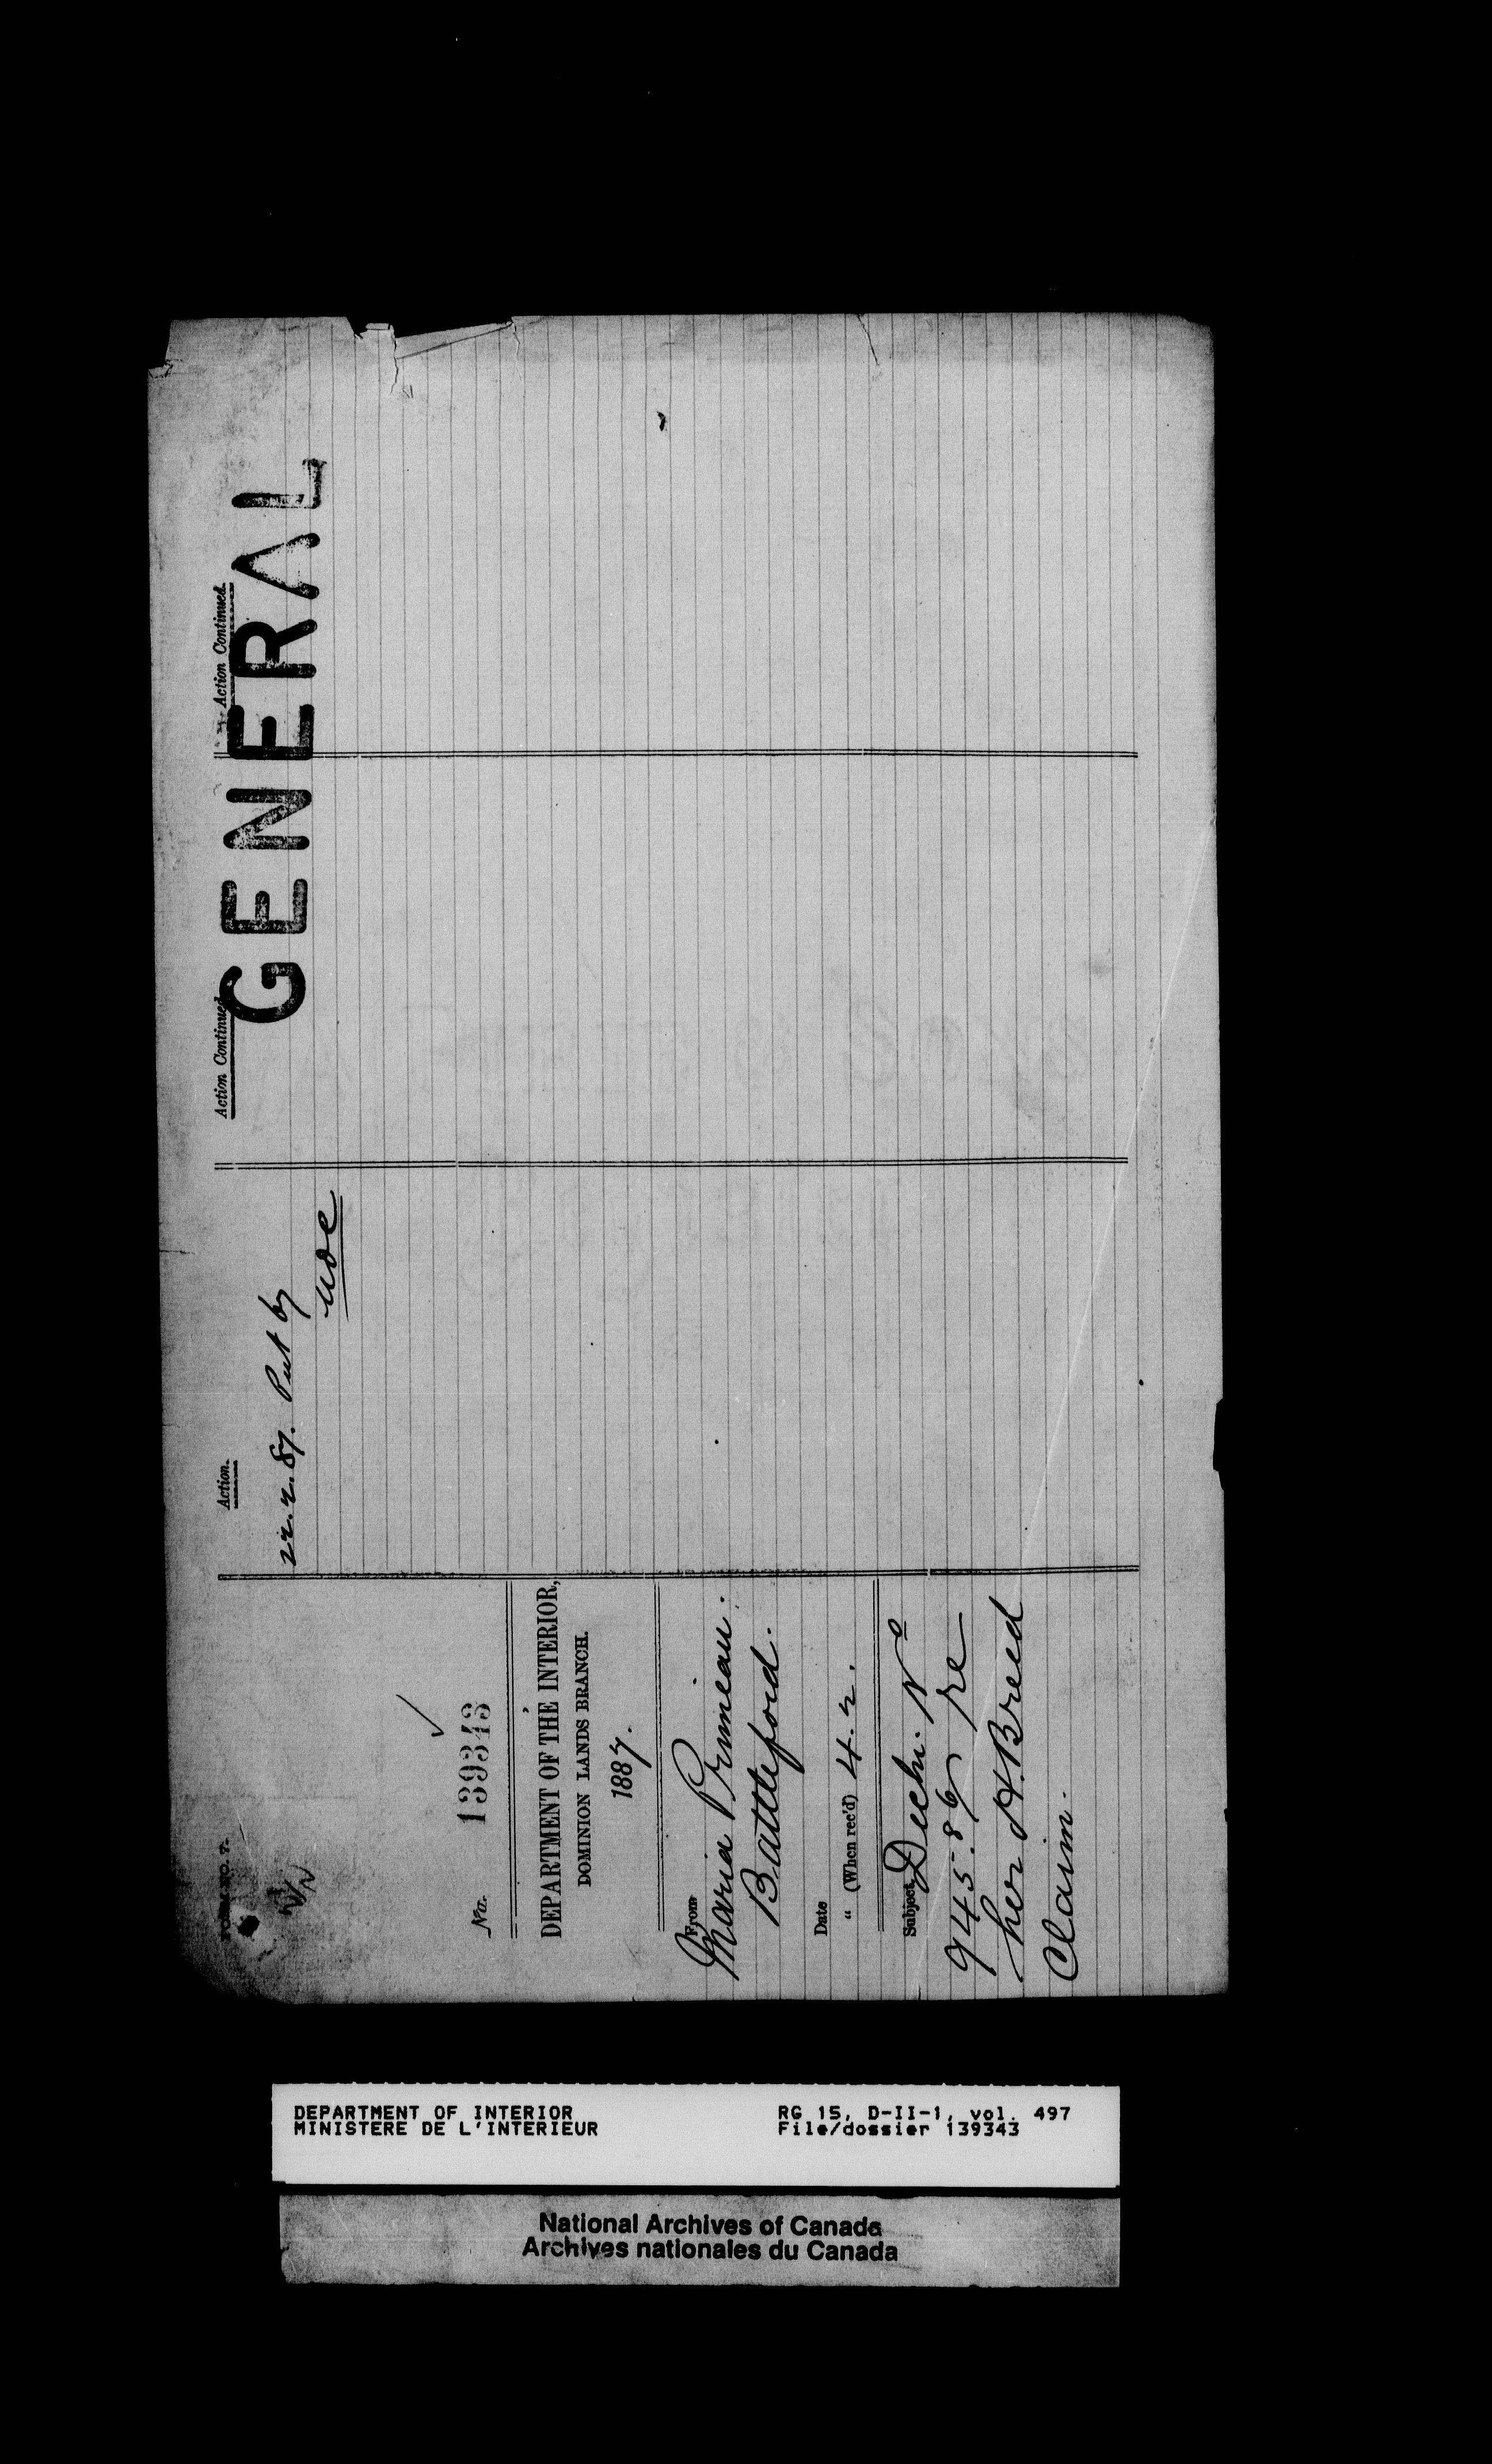 FORM NO. 7.
No. 139343
DEPARTMENT OF THE INTERIOR,
DOMINION LANDS BRANCH.
1887.
From
Maria Primeau.
Battleford.
Date
" (When rec'd) 4.2.
Subject, Decln. No
945.86 re
her H.Breed
Claim.
Action.
22.2.87. Put by
Action Continued.
Action Continued.
GENERAL
DEPARTMENT OF INTERIOR
MINISTERE DE L'INTERIEUR
RG 15, D-II-1, vol. 497
File/dossier 139343
National Archives of Canada
Archives nationales du Canada